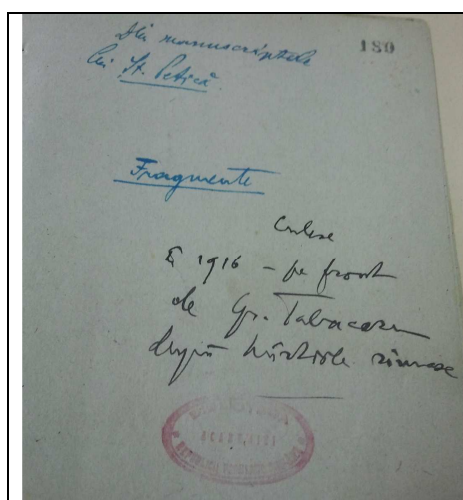 Din manuscriptele
lui Șt. Petică.
180
Fragmente
Culese
în 1916 – pe front
de Gr. Tabacaru
după hârtiile rămase